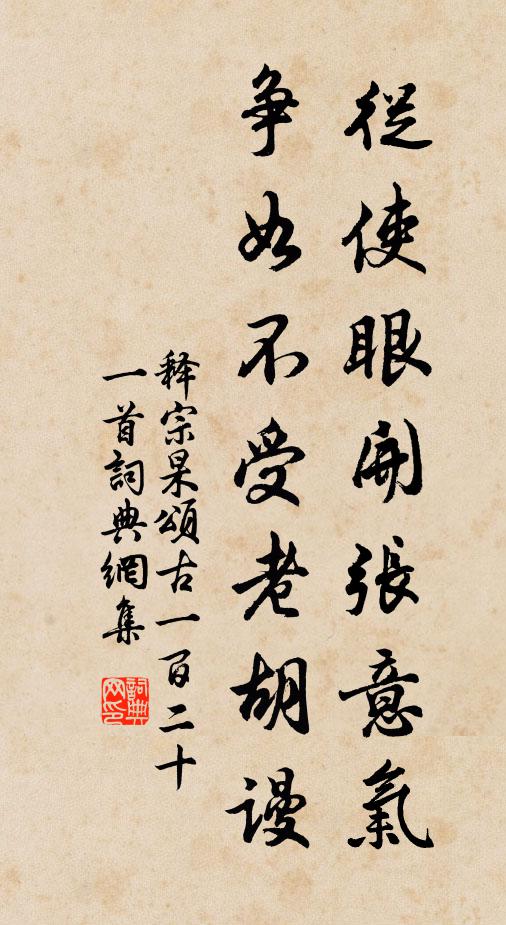 從使眼開張意氣
争如不受老胡謾
释宗杲頌古一百二十
一首詞典網集
詞典网印